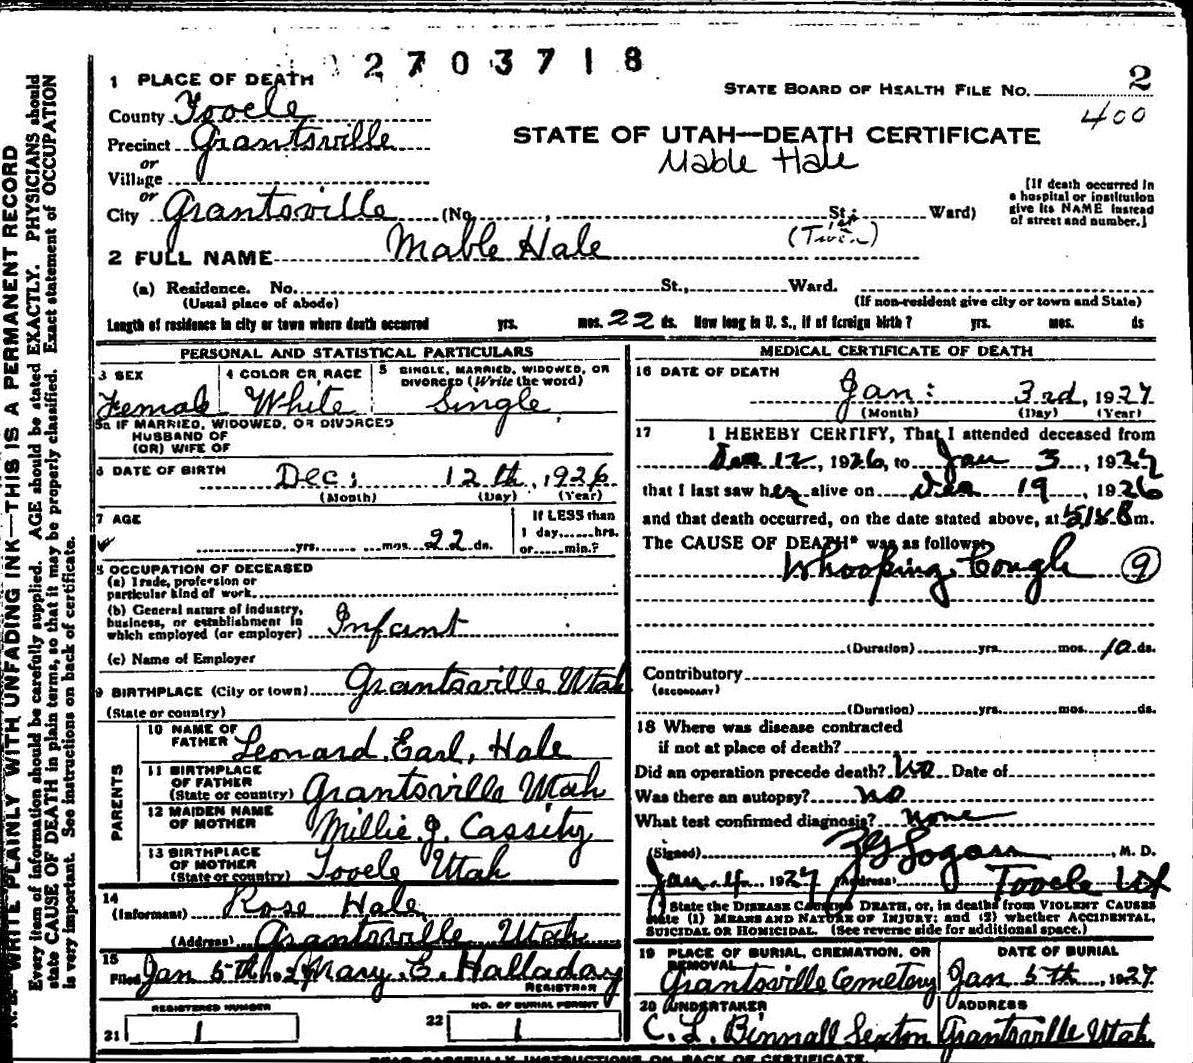 2703718
1 PLACE OF DEATH
STATE BOARD OF HEALTH FILE NO. 2
400
County Tooele
Precinct Grantsville
STATE OF UTAH—DEATH CERTIFICATE
Mable Hale
or
Village
or
City Grantsville (No. , St.; Ward)
[If death occurred in
a hospital or institution
give its NAME instead
of street and number.]
(Twin)
2 FULL NAME Mable Hale
(a) Residence. No. St., Ward.
(Usual place of abode) (If non-resident give city or town and State)
Length of residence in city or town where death occurred yrs. mos. 22 ds. How long in U. S., if of foreign birth? yrs. mos. ds
PERSONAL AND STATISTICAL PARTICULARS
3 SEX
Female
4 COLOR OR RACE
White
5 SINGLE, MARRIED, WIDOWED, OR
DIVORCED (Write the word)
Single
5a IF MARRIED, WIDOWED, OR DIVORCED
HUSBAND OF
(OR) WIFE OF
6 DATE OF BIRTH Dec: 12th, 1926
(Month) (Day) (Year)
7 AGE
yrs. mos. 22 ds.
If LESS than
1 day,......hrs.
or......min.?
8 OCCUPATION OF DECEASED
(a) Trade, profession or
particular kind of work
(b) General nature of industry,
business, or establishment in
which employed (or employer) Infant
(c) Name of Employer
9 BIRTHPLACE (City or town) Grantsville Utah
(State or country)
PARENTS
10 NAME OF
FATHER Leonard Earl Hale
11 BIRTHPLACE
OF FATHER
(State or country) Grantsville Utah
12 MAIDEN NAME
OF MOTHER Millie J. Cassity
13 BIRTHPLACE
OF MOTHER
(State or country) Tooele Utah
14
(Informant) Rose Hale
(Address) Grantsville Utah
15
Filed Jan 5th 1927 Mary E. Halladay
REGISTRAR
REGISTERED NUMBER
21
NO. OF BURIAL PERMIT
22
MEDICAL CERTIFICATE OF DEATH
16 DATE OF DEATH
Jan: 3rd, 1927
(Month) (Day) (Year)
17 I HEREBY CERTIFY, That I attended deceased from
Dec 12, 1926, to Jan 3, 1927
that I last saw her alive on Dec 19, 1926
and that death occurred, on the date stated above, at m.
The CAUSE OF DEATH* was as follows:
Whooping Cough 9
(Duration) yrs. mos. 10 ds.
Contributory
(SECONDARY)
(Duration) yrs. mos. ds.
18 Where was disease contracted
if not at place of death?
Did an operation precede death? No Date of
Was there an autopsy? no
What test confirmed diagnosis? none
(Signed) Logan, M. D.
Jan. 4, 1927 (Address) Tooele Ut
*State the DISEASE CAUSING DEATH, or, in deaths from VIOLENT CAUSES
state (1) MEANS AND NATURE OF INJURY; and (2) whether ACCIDENTAL,
SUICIDAL OR HOMICIDAL. (See reverse side for additional space.)
19 PLACE OF BURIAL, CREMATION, OR
REMOVAL
Grantsville Cemetery
DATE OF BURIAL
Jan 5th, 1927
20 UNDERTAKER
C. L. Binnall Sexton
ADDRESS
Grantsville Utah
READ CAREFULLY INSTRUCTIONS ON BACK OF CERTIFICATE.
WRITE PLAINLY WITH UNFADING INK—THIS IS A PERMANENT RECORD
Every item of information should be carefully supplied. AGE should be stated EXACTLY. PHYSICIANS should
state CAUSE OF DEATH in plain terms, so that it may be properly classified. Exact statement of OCCUPATION
is very important. See instructions on back of certificate.